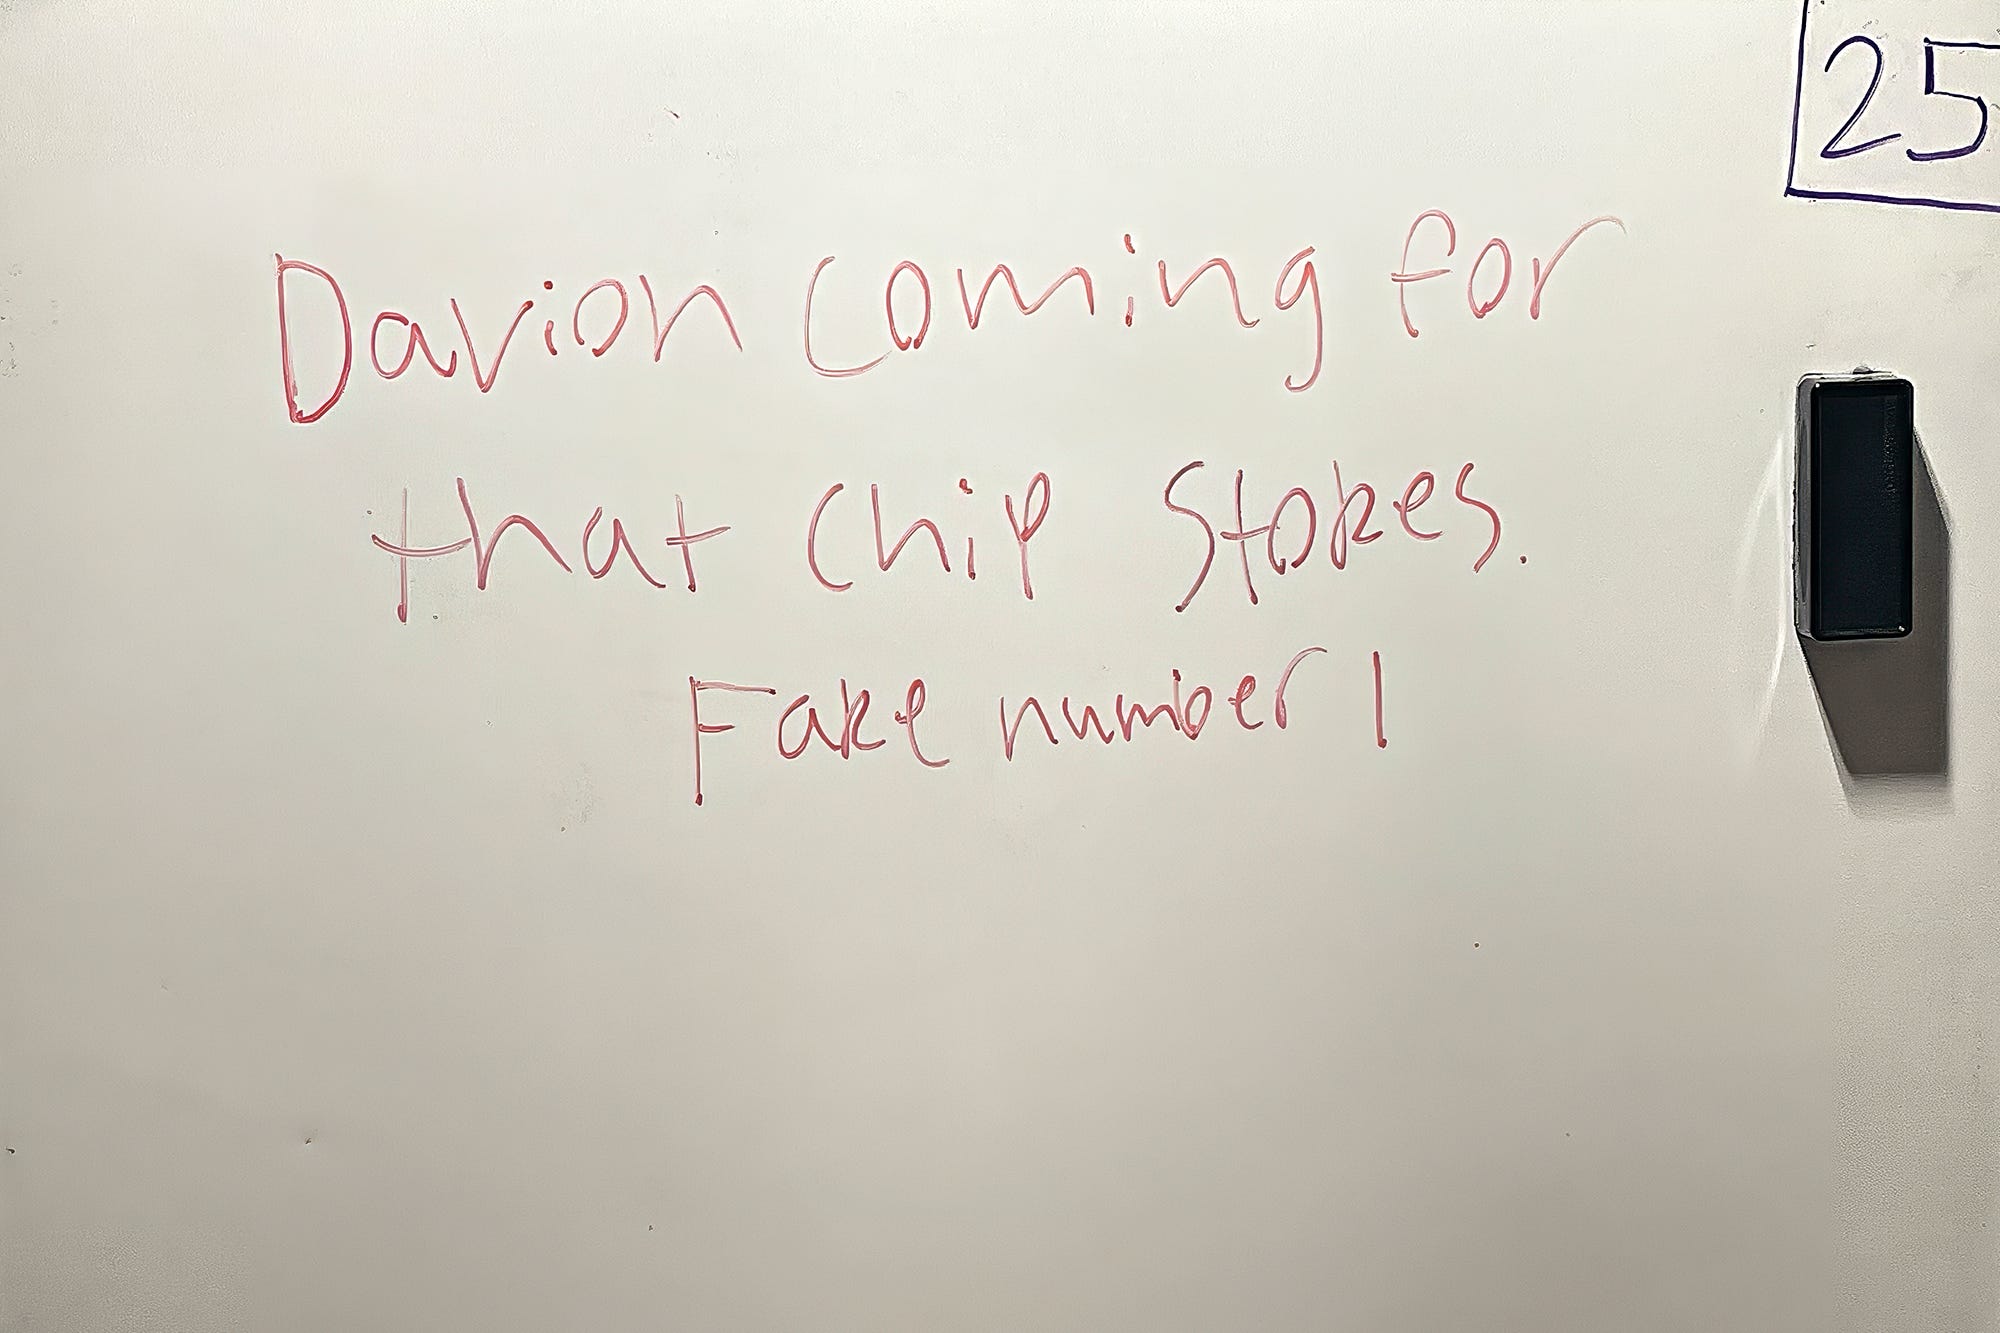 25
Davion coming for
that chip Stokes.
Fake number 1